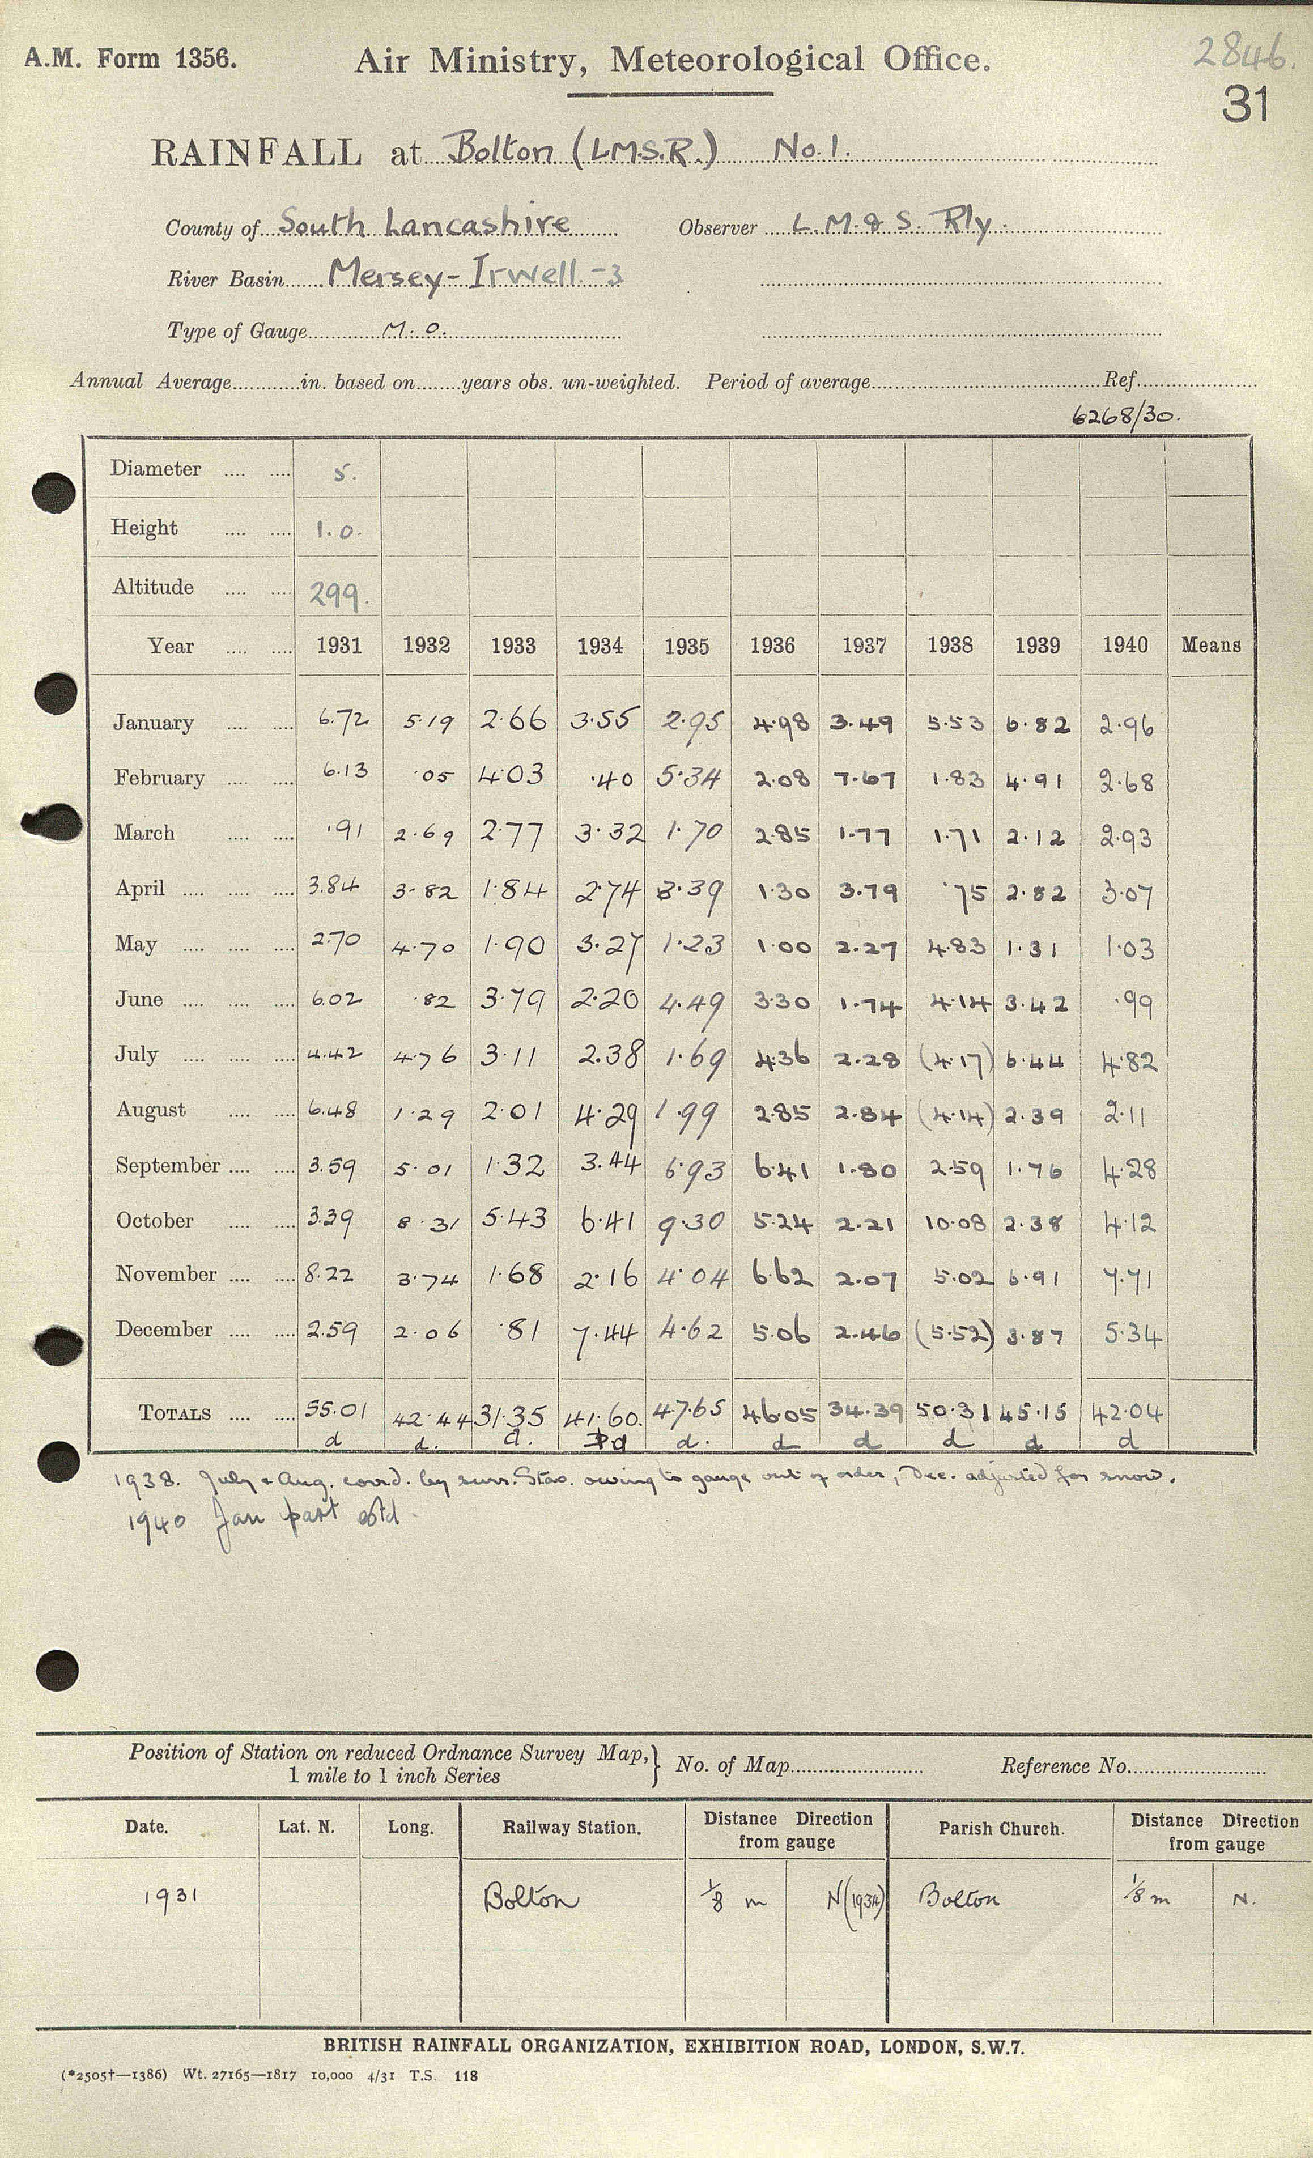 A.M. Form 1356. Air Ministry, Meteorological Office. 2846.
31
RAINFALL at Bolton (L.M.S.R.) No. 1.
County of South Lancashire Observer L. M. & S. Rly.
River Basin Mersey-Irwell.-3
Type of Gauge M. O.
Annual Average in. based on years obs. un-weighted. Period of average Ref.
6268/30.
Diameter 5.
Height 1.0.
Altitude 299.
Year 1931 1932 1933 1934 1935 1936 1937 1938 1939 1940 Means
January 6.72 5.19 2.66 3.55 2.95 4.98 3.49 5.53 6.82 2.96
February 6.13 .05 4.03 .40 5.34 2.08 7.67 1.83 4.91 2.68
March .91 2.69 2.77 3.32 1.70 2.85 1.77 1.71 2.12 2.93
April 3.84 3.82 1.84 2.74 3.39 1.30 3.79 .75 2.82 3.07
May 2.70 4.70 1.90 3.27 1.23 1.00 2.27 4.83 1.31 1.03
June 6.02 .82 3.79 2.20 4.49 3.30 1.74 4.14 3.42 .99
July 4.42 4.76 3.11 2.38 1.69 4.36 2.28 (4.17) 6.44 4.82
August 6.48 1.29 2.01 4.29 1.99 2.85 2.84 (4.14) 2.39 2.11
September 3.59 5.01 1.32 3.44 6.93 6.41 1.80 2.59 1.76 4.28
October 3.39 8.31 5.43 6.41 9.30 5.24 2.21 10.08 2.38 4.12
November 8.22 3.74 1.68 2.16 4.04 6.62 2.07 5.02 6.91 7.71
December 2.59 2.06 .81 7.44 4.62 5.06 2.46 (5.52) 3.87 5.34
TOTALS 55.01 42.44 31.35 41.60. 47.65 46.05 34.39 50.31 45.15 42.04
d d. d. d d. d d d d d
1938. July & Aug. corrd. by surr. Stas. owing to gauge out of order, Dec. adjusted for snow.
1940 Jan part estd.
Position of Station on reduced Ordnance Survey Map, } No. of Map Reference No.
1 mile to 1 inch Series
Date. Lat. N. Long. Railway Station. Distance Direction from gauge Parish Church. Distance Direction from gauge
1931 Bolton 1/8 m N (1934) Bolton 1/8 m N.
BRITISH RAINFALL ORGANIZATION, EXHIBITION ROAD, LONDON, S.W.7.
(*2505†—1386) Wt. 27165—1817 10,000 4/31 T.S. 118